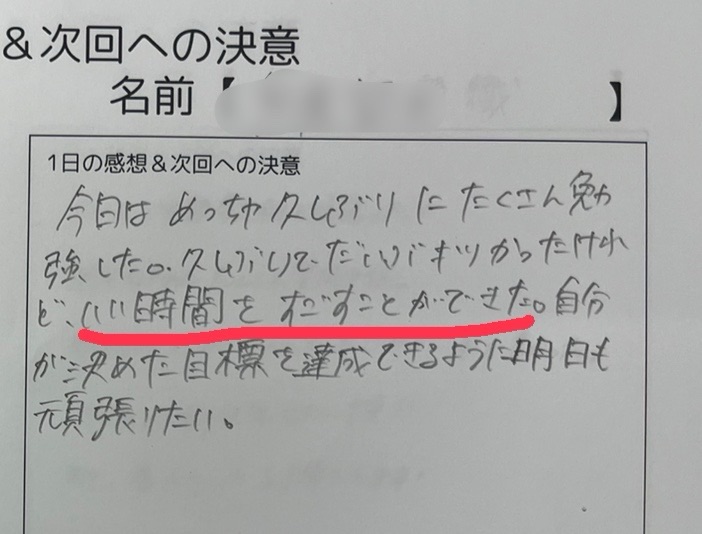 &次回への決意
名前【 】
1日の感想&次回への決意
今日は めっちゃ久しぶりに たくさん勉
強した。久しぶりで だいぶキツかったけれ
ど、いい時間を すごすことができた。自分
が決めた目標を達成できるように明日も
頑張りたい。